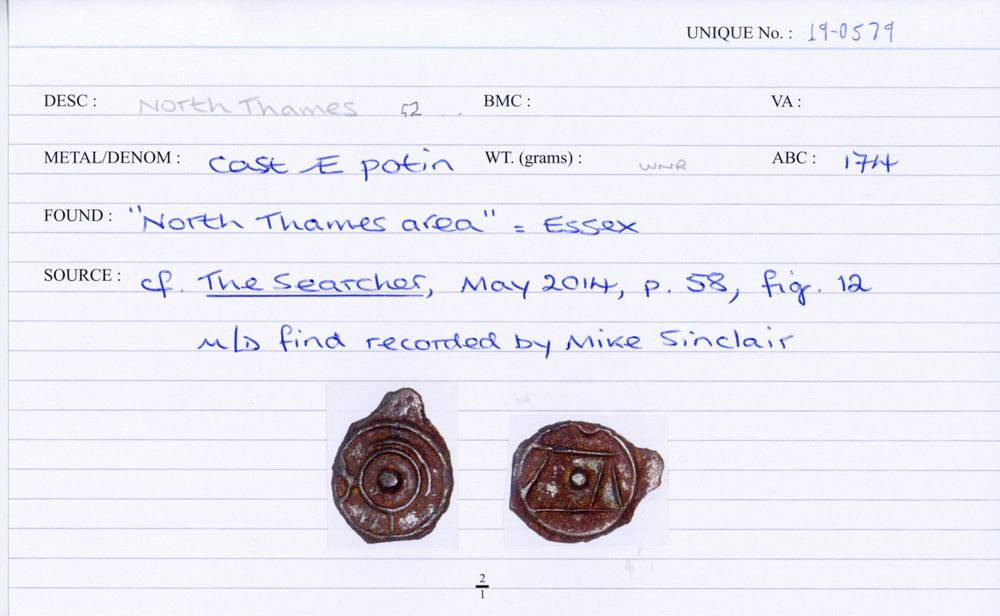 UNIQUE No. : 19-0579
DESC : North Thames BMC : VA :
METAL/DENOM : cast Æ potin WT. (grams) : WNR ABC : 174
FOUND : "North Thames area" = Essex
SOURCE : cf. The Searcher, May 2014, p. 58, fig. 12
M/D find recorded by Mike Sinclair
2
1